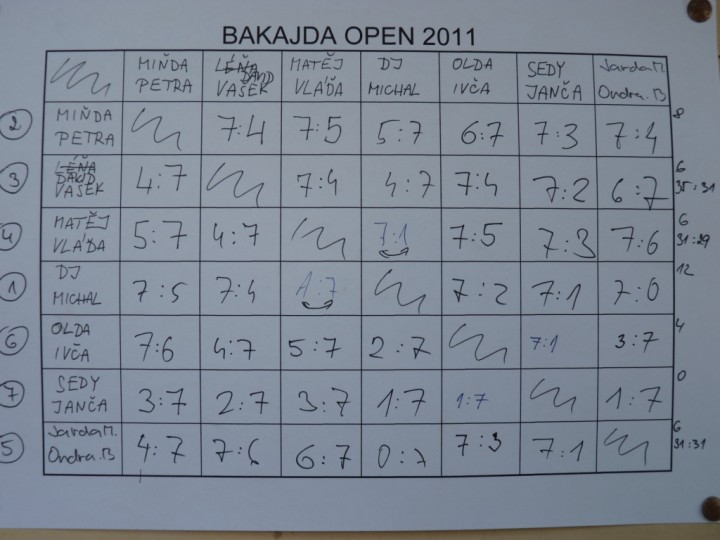 BAKAJDA OPEN 2011
MIŇDA PETRA DAVID VAŠEK MATĚJ VLÁĎA DJ MICHAL OLDA IVČA SEDY JANČA Jarda M. Ondra.B
2 MIŇDA PETRA 7:4 7:5 5:7 6:7 7:3 7:4 8
3 LÉŇA DAVID VAŠEK 4:7 7:4 4:7 7:4 7:2 6:7 6 35:31
4 MATĚJ VLÁĎA 5:7 4:7 7:1 7:5 7:3 7:6 6 31:29
1 DJ MICHAL 7:5 7:4 1:7 7:2 7:1 7:0 12
6 OLDA IVČA 7:6 4:7 5:7 2:7 7:1 3:7 4
7 SEDY JANČA 3:7 2:7 3:7 1:7 1:7 1:7 0
5 Jarda M. Ondra.B 4:7 7:6 6:7 0:7 7:3 7:1 6 31:31